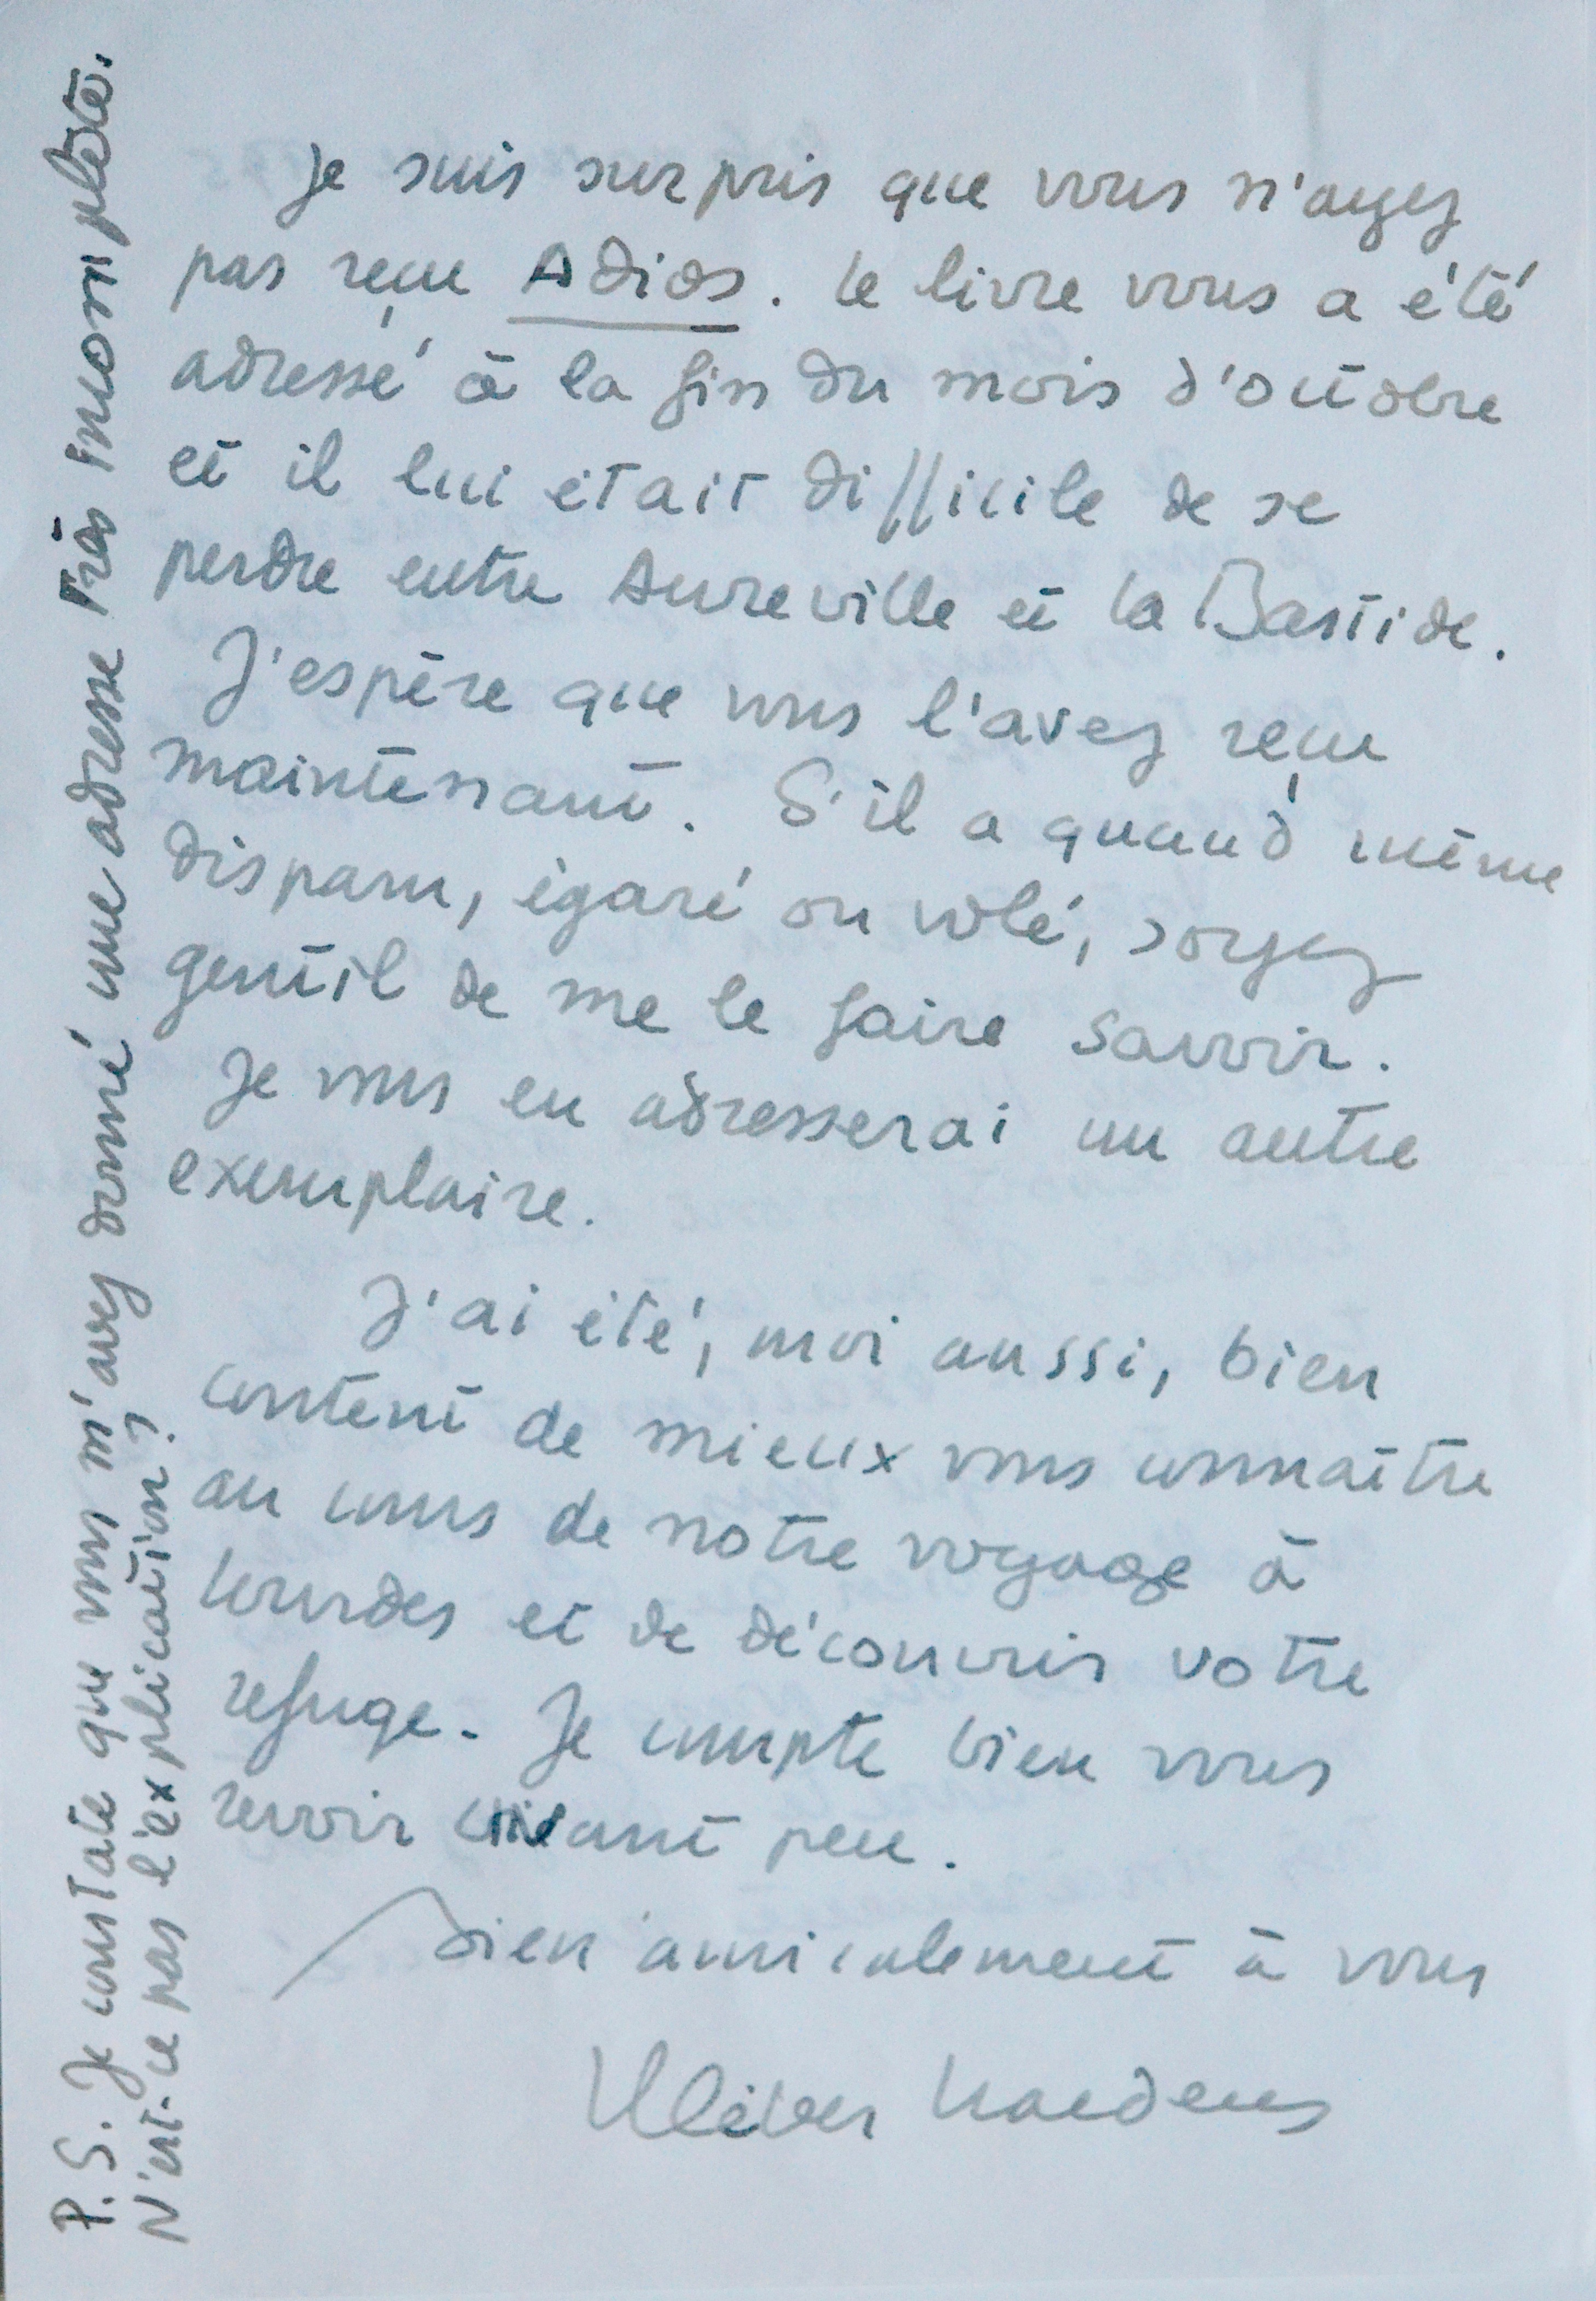 Je suis surpris que vous n'ayez
pas reçu Adios. Le livre vous a été
adressé à la fin du mois d'octobre
et il lui était difficile de se
perdre entre Aureville et La Bastide.
J'espère que vous l'avez reçu
maintenant. S'il a quand même
disparu, égaré ou volé, soyez
gentil de me le faire savoir.
Je vous en adresserai un autre
exemplaire.
J'ai été, moi aussi, bien
content de mieux vous connaître
au cours de notre voyage à
Lourdes et de découvrir votre
refuge. Je compte bien vous
revoir avant peu.
Bien amicalement à vous
Kléber Haedens
P.S. Je constate que vous m'avez donné une adresse très incomplète.
N'est-ce pas l'explication ?